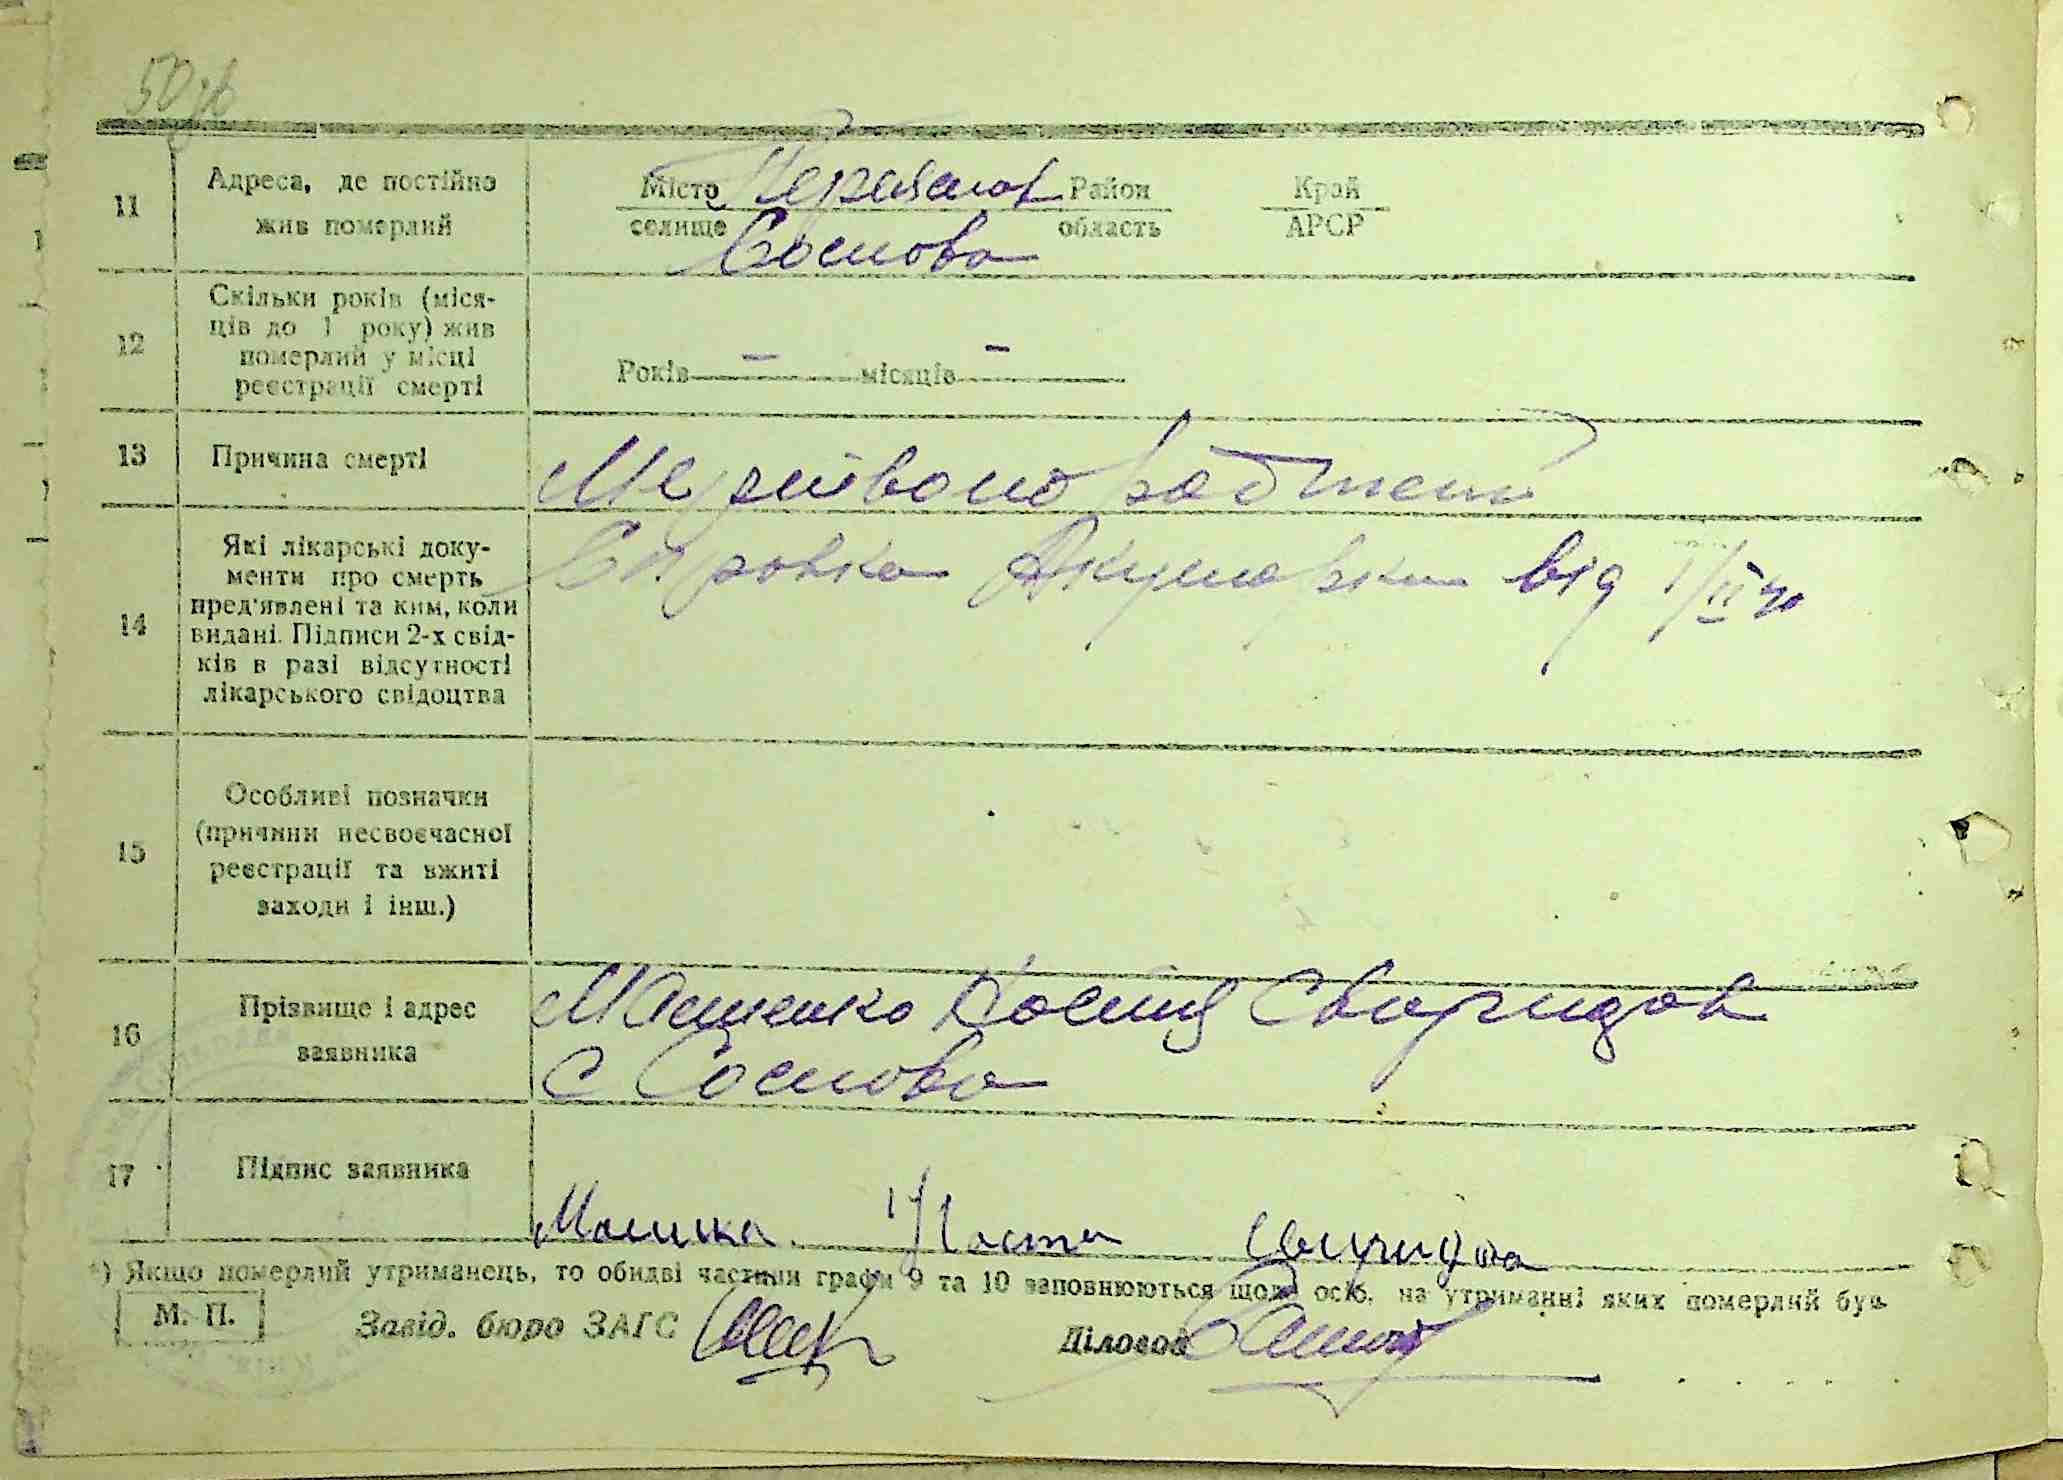 50 зв
11
Адреса, де постійно
жив померлий
Місто Переяслов Район Край
селище область АРСР
Соснова
12
Скільки років (міся-
ців до 1 року) жив
померлий у місці
реєстрації смерті
Років — місяців —
13
Причина смерті
14
Які лікарські доку-
менти про смерть
пред'явлені та ким, коли
видані. Підписи 2-х свід-
ків в разі відсутності
лікарського свідоцтва
Справка Акушорки від
15
Особливі позначки
(причини несвоєчасної
реєстрації та вжиті
заходи і інш.)
16
Прізвище і адрес
заявника
с Соснова
17
Підпис заявника
*) Якщо померлий утриманець, то обидві частини графи 9 та 10 заповнюються щодо осіб, на утриманні яких померлий був.
М. П.
Завід. бюро ЗАГС
Діловод